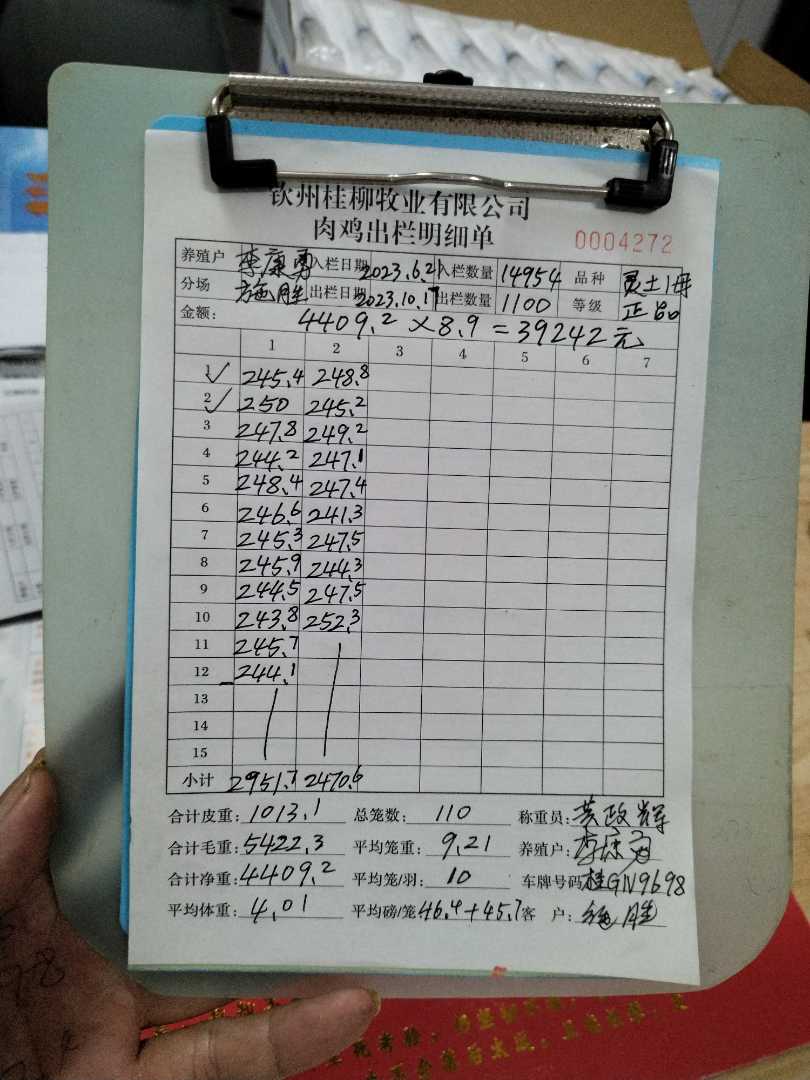 钦州桂柳牧业有限公司
肉鸡出栏明细单 0004272
养殖户 李康勇 入栏日期 2023.6.21 入栏数量 14954 品种 灵土1母
分场 施胜 出栏日期 2023.10.17 出栏数量 1100 等级 正品
金额: 4409.2×8.9=39242元
1 2 3 4 5 6 7
1 245.4 248.8
2 250 245.2
3 247.8 249.2
4 244.2 247.1
5 248.4 247.4
6 246.6 241.3
7 245.3 247.5
8 245.9 244.3
9 244.5 247.5
10 243.8 252.3
11 245.7
12 244.1
13
14
15
小计 2951.7 2470.6
合计皮重: 1013.1 总笼数: 110 称重员: 黄政辉
合计毛重: 5422.3 平均笼重: 9.21 养殖户: 李康勇
合计净重: 4409.2 平均笼/羽: 10 车牌号码 桂GN9698
平均体重: 4.01 平均磅/笼 46.4+45.7 客 户: 施胜